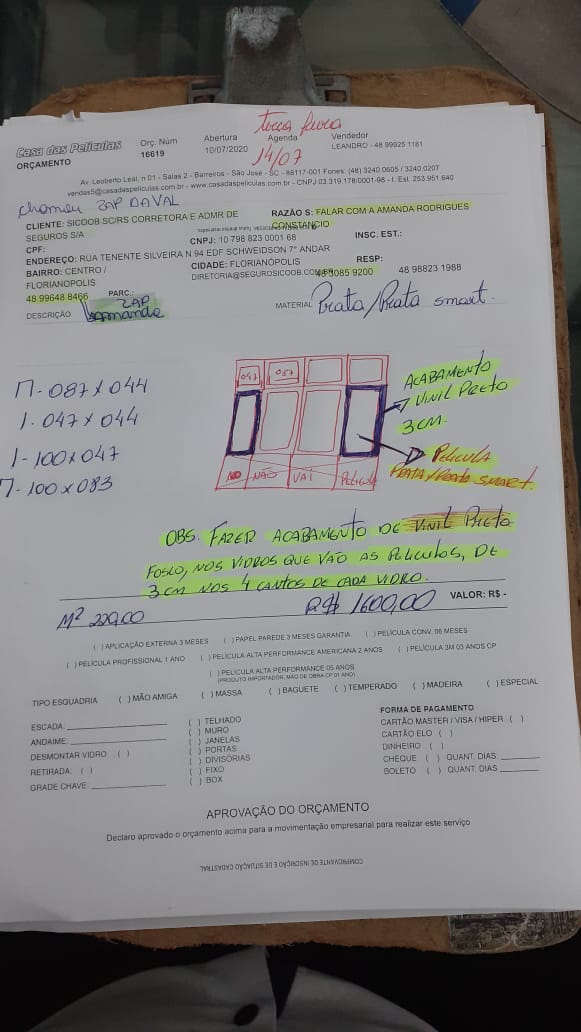 Casa das Películas
ORÇAMENTO
Orç. Núm
16619
Abertura
10/07/2020
terça feira
Agenda
14/07
Vendedor
LEANDRO - 48 99925 1161
Av. Leoberto Leal, n 015 - Salas 2 - Barreiros - São José - SC - 88117-001 Fones: (48) 3240.0605 / 3240.0207
vendas5@casadaspeliculas.com.br - www.casadaspeliculas.com.br - CNPJ 03.319.178/0001-98 - I. Est. 253.951.640
chamou ZAP DAVAL
CLIENTE: SICOOB SC/RS CORRETORA E ADMR DE SEGUROS S/A
RAZÃO S: FALAR COM A AMANDA RODRIGUES CONSTANCIO
CPF:
CNPJ: 10 798 823 0001 68
INSC. EST.:
ENDEREÇO: RUA TENENTE SILVEIRA N 94 EDF SCHWEIDSON 7° ANDAR
BAIRRO: CENTRO / FLORIANOPOLIS
CIDADE: FLORIANÓPOLIS
RESP:
DIRETORIA@SEGUROSICOOB.COM.BR
48 3085 9200
48 98823 1988
48 99648 8466
PARC.:
ZAP
DESCRIÇÃO
Armanda
MATERIAL
Prata/Prata smart.
Π - 087 x 044
1 - 047 x 044
1 - 100 x 047
Π - 100 x 083
047 087
NÃO NÃO VAI PELICULA
ACABAMENTO
VINIL PRETO
3CM.
PELICULA
PRATA/PRATA SMART.
OBS. FAZER ACABAMENTO DE VINIL PRETO
FOSCO, NOS VIDROS QUE VÃO AS PELICULAS, DE
3 CM NOS 4 CANTOS DE CADA VIDRO.
M² 220,00
R$ 1600,00
VALOR: R$ -
( ) APLICAÇÃO EXTERNA 3 MESES ( ) PAPEL PAREDE 3 MESES GARANTIA ( ) PELÍCULA CONV. 06 MESES
( ) PELÍCULA PROFISSIONAL 1 ANO ( ) PELÍCULA ALTA PERFORMANCE AMERICANA 2 ANOS ( ) PELÍCULA 3M 03 ANOS CP
( ) PELÍCULA ALTA PERFORMANCE 05 ANOS
(PRODUTO IMPORTADOR, MÃO DE OBRA CP 01 ANO)
TIPO ESQUADRIA ( ) MÃO AMIGA ( ) MASSA ( ) BAGUETE ( ) TEMPERADO ( ) MADEIRA ( ) ESPECIAL
ESCADA:
ANDAIME:
DESMONTAR VIDRO: ( )
RETIRADA: ( )
GRADE CHAVE:
( ) TELHADO
( ) MURO
( ) JANELAS
( ) PORTAS
( ) DIVISÓRIAS
( ) FIXO
( ) BOX
FORMA DE PAGAMENTO
CARTÃO MASTER / VISA / HIPER ( )
CARTÃO ELO ( )
DINHEIRO ( )
CHEQUE ( ) QUANT. DIAS:
BOLETO ( ) QUANT. DIAS
APROVAÇÃO DO ORÇAMENTO
Declaro aprovado o orçamento acima para a movimentação empresarial para realizar este serviço
COMPROVANTE DE INSCRIÇÃO E DE SITUAÇÃO CADASTRAL